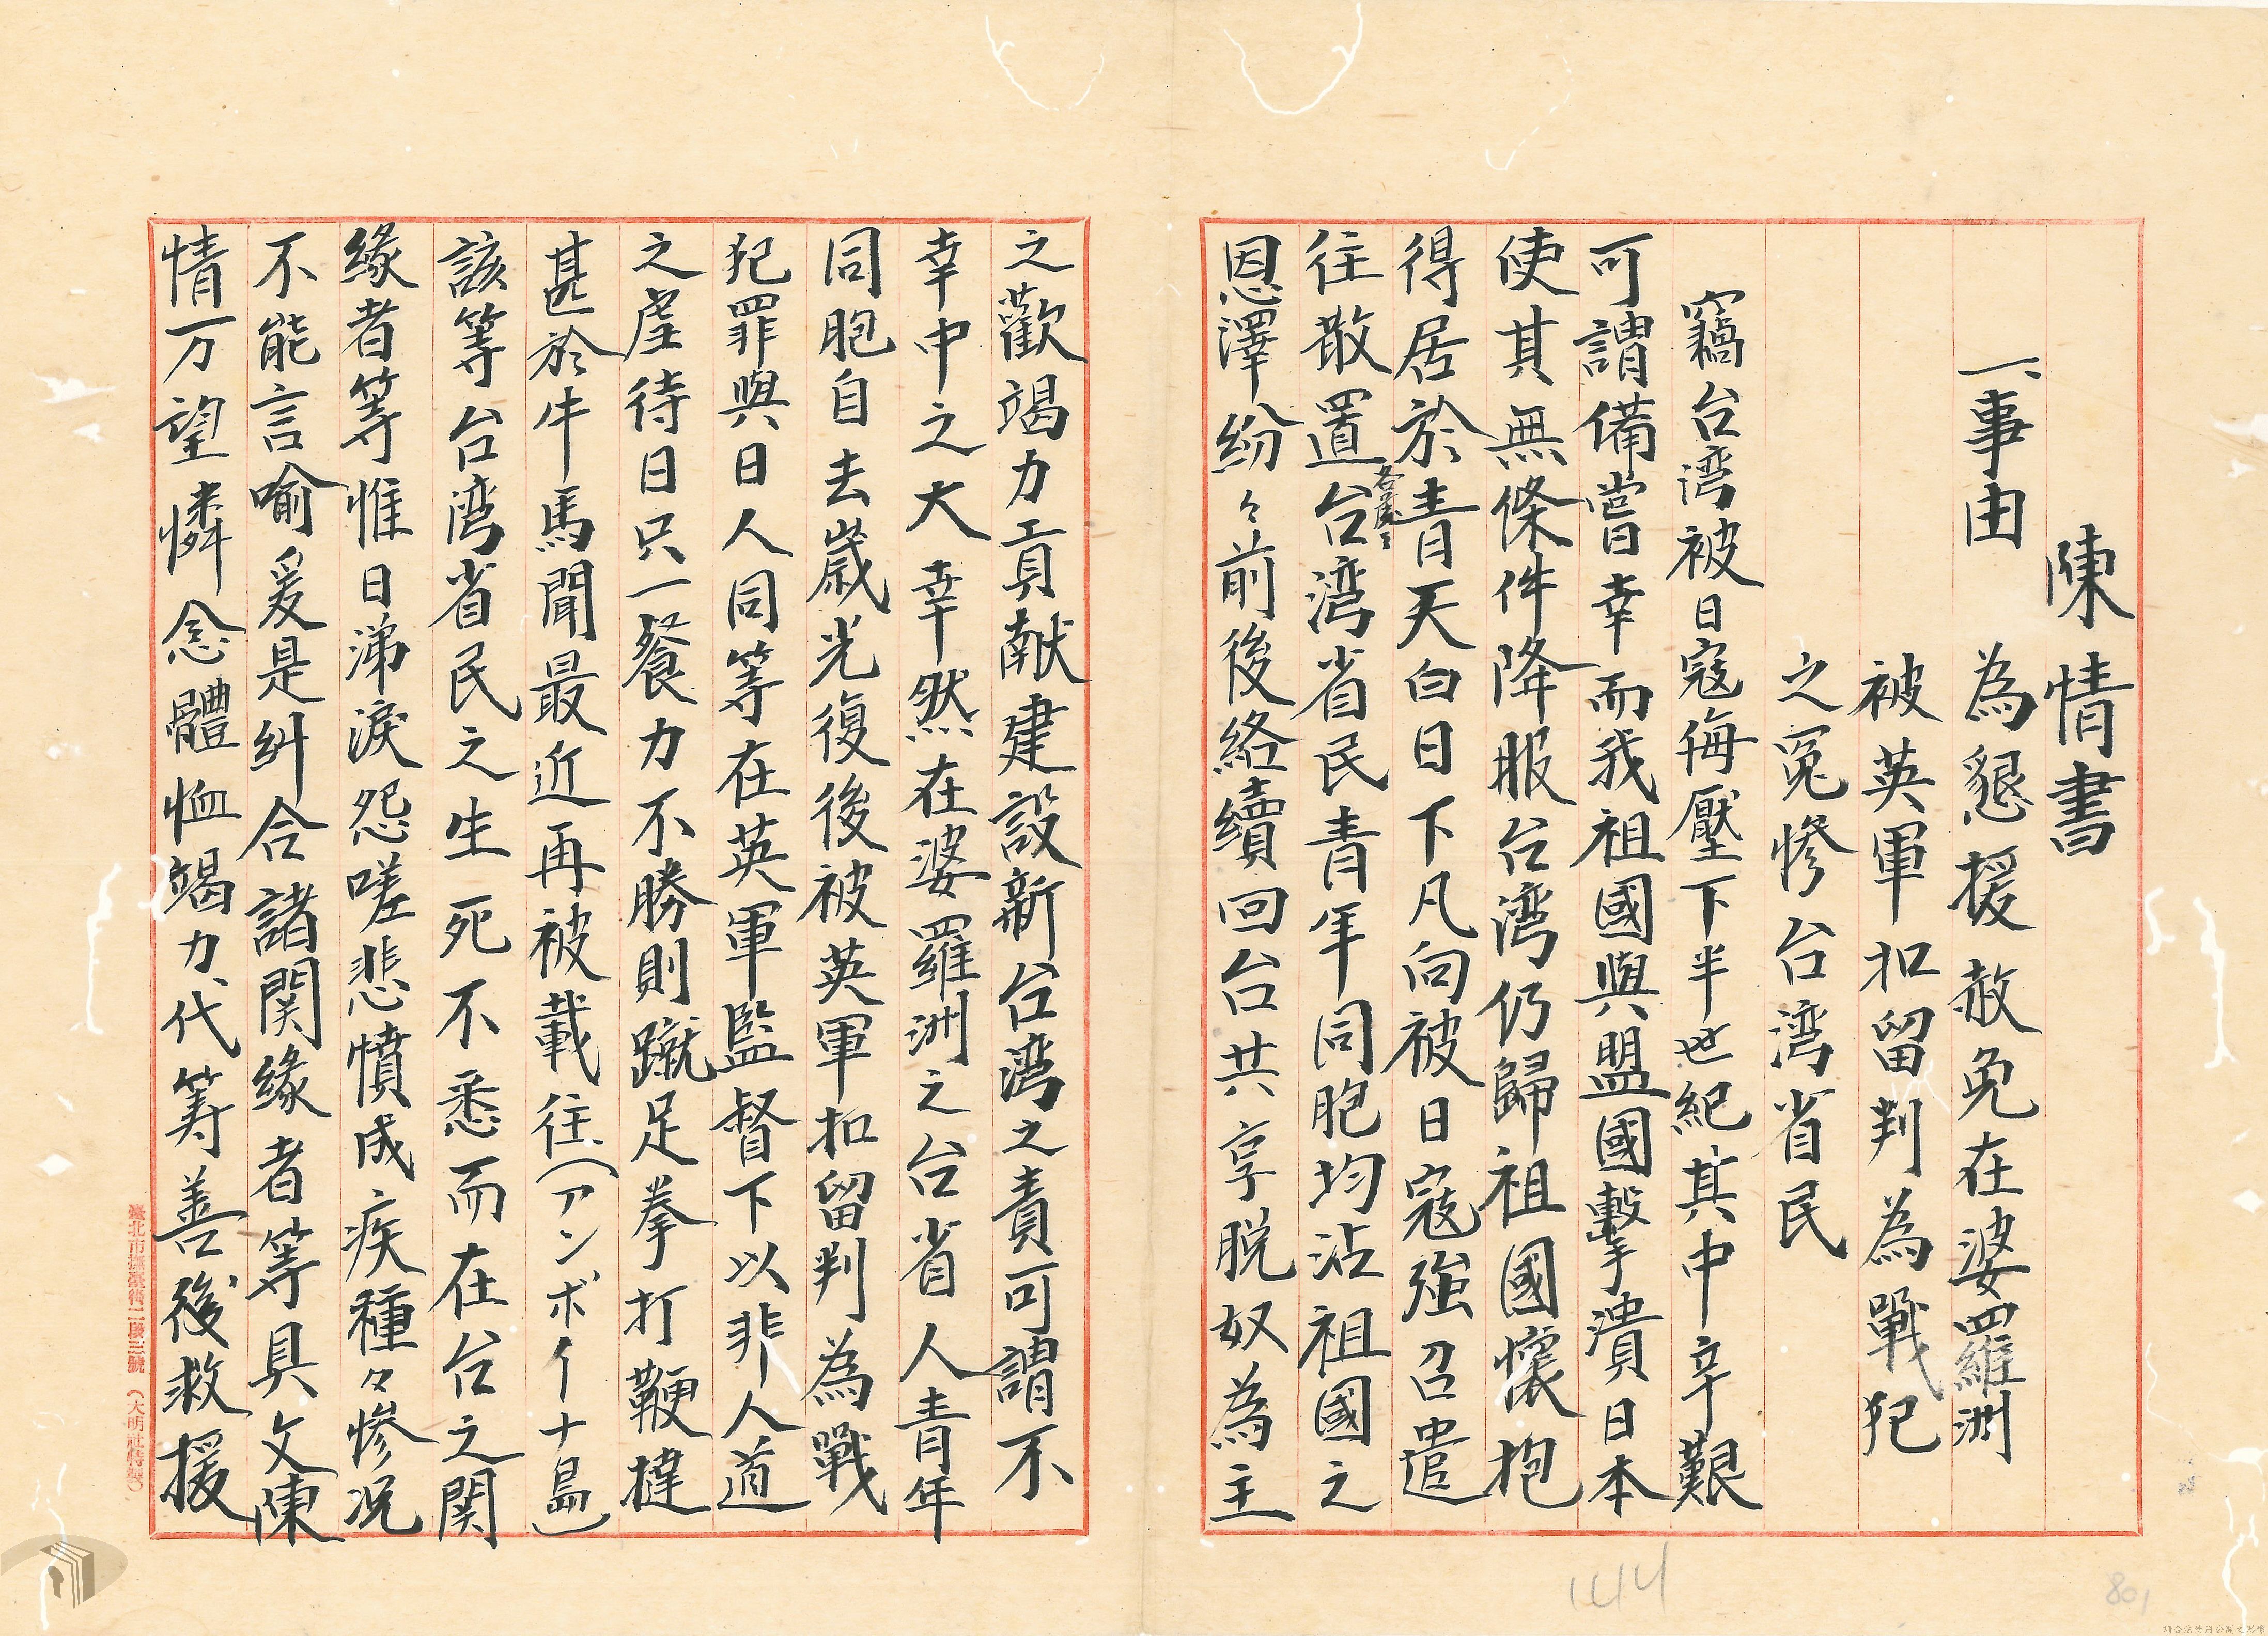 陳情書
一、事由 為懇援赦免在婆羅洲
被英軍扣留判為戰犯
之冤慘台湾省民
竊台湾被日寇侮壓下半世紀其中辛艱
可謂備嘗幸而我祖國與盟國擊潰日本
使其無條件降服台湾仍歸祖國懷抱
得居於青天白日下凡向被日寇強召遣
往散置各處之台湾省民青年同胞均沾祖國之
恩澤紛々前後絡續回台共享脱奴為主
之歡竭力貢献建設新台湾之責可謂不
幸中之大幸然在婆羅洲之台省人青年
同胞自去歲光復後被英軍扣留判為戰
犯罪與日人同等在英軍監督下以非人道
之虐待日只一餐力不勝則蹴足拳打鞭撻
甚於牛馬聞最近再被載往(アンボイナ島)
該等台湾省民之生死不悉而在台之関
緣者等惟日涕淚怨嗟悲憤成疾種々慘况
不能言喻爰是糾合諸関緣者等具文陳
情万望憐念體恤竭力代籌善後救援
臺北市撫臺街二段三號 (大明社特製)
144
801
請合法使用公開之影像